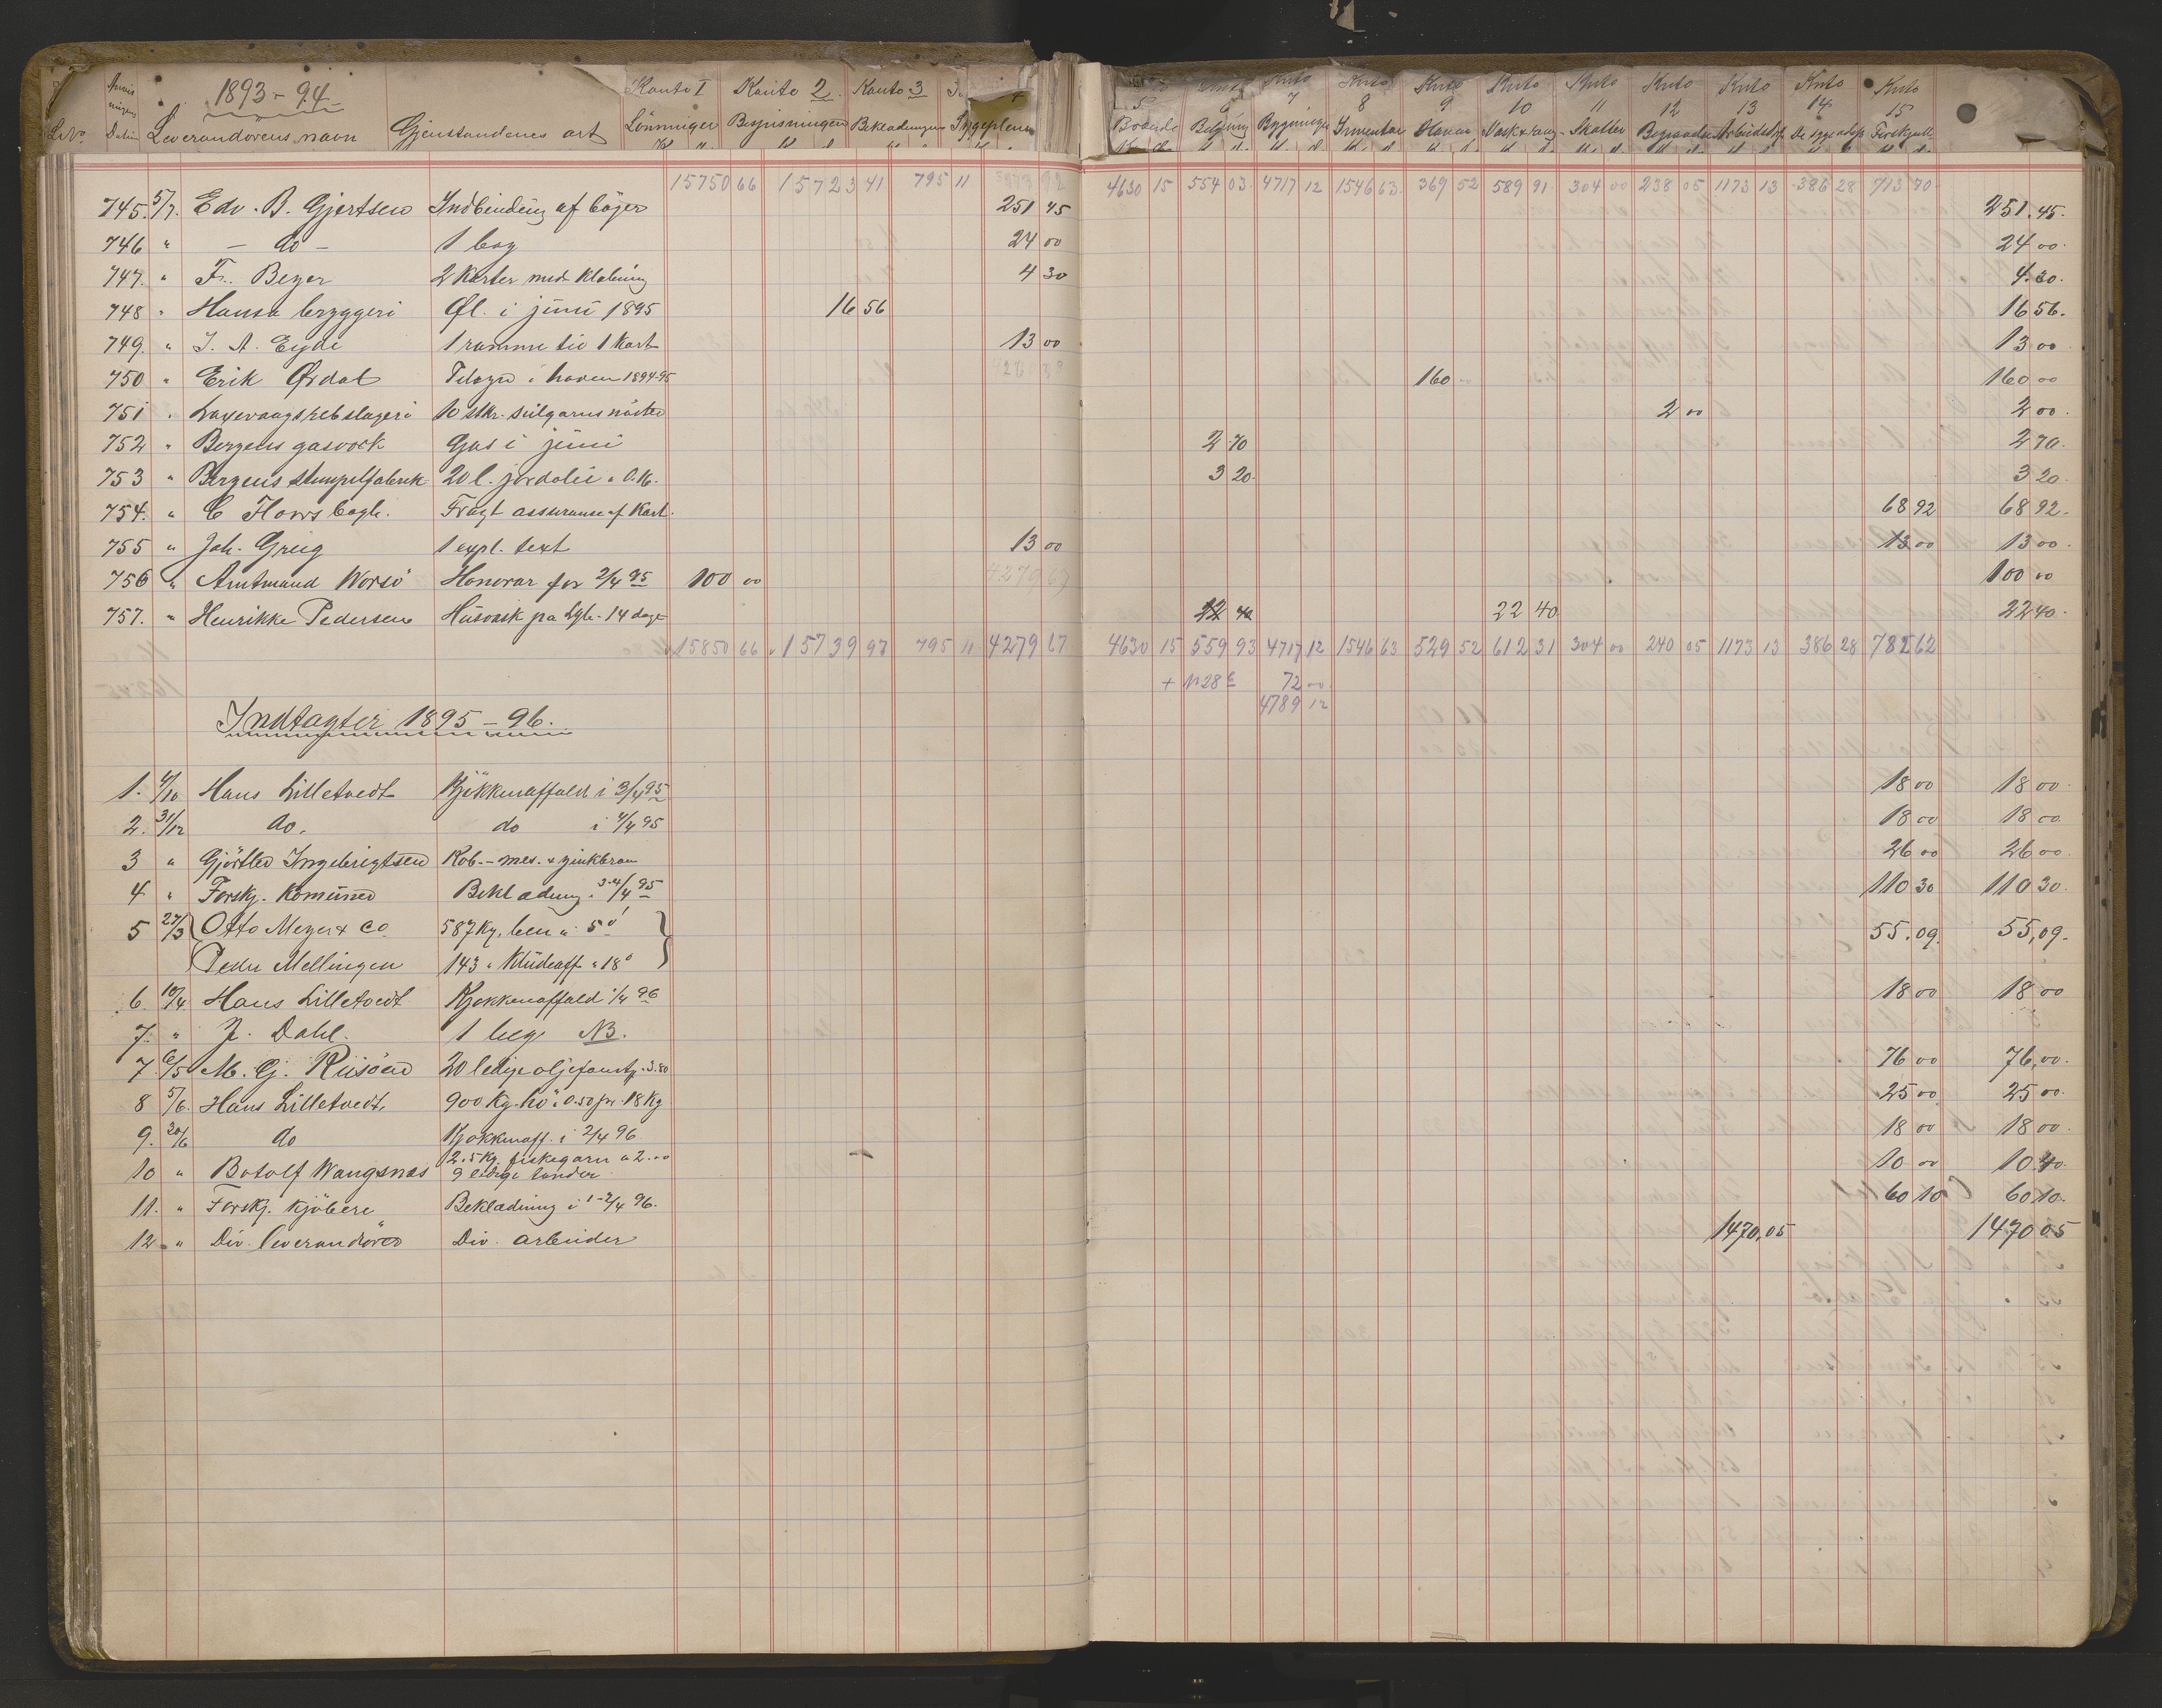 1893-94
Konto 1 Konto 2. Konto 3
L.No. Datum Leverandørens navn Gjenstandenes art Lönninger Bespisningen Beklædningen Sygepleien
Konto Konto Konto Konto Konto Konto Konto Konto Konto
5 6 7 8 9 10 11 12 13 14 15
Bygninger Inventar Haven Skatter
15750 66 15723 41 795 11 4630 15 554 03 4717 12 1546 63 369 52 589 91 304 00 238 05 1173 13 386 28 713 70
745. 5/7. Edv. B. Gjertsen Indbinding af böger 251 45 251.45.
746 " - do - 1 bog 24 00 24 00.
747. " Fr. Beyer 2 Karter med Klebning 4 30 4.30.
748 " Hansa bryggeri Øl. i juni 1895 16 56 16 56.
749. " I. A. Eyde 1 ramme til 1 Kart 13 00 13 00
750 " Erik Ørdal Tilsyn i haven 1894-95 160 00 160 00
751 " Laxevaags rebslageri 10 stkr. seilgarns nöster 2 00 2 00.
752 " Bergens gasverk Gas i juni 2 70 2 70.
753 " Bergens stempelfabrik 20 l. jordolie a 0.16. 3 20. 3 20.
754. " C Flors bogh. Fragt assuranse af Kart. 68 92 68 92.
755 " Joh. Greig 1 expl. text 13 00 13 00 13 00.
756 " Amtmand Worsö Honorar for 2/4 95 100 00 100 00
757. " Henrikke Pedersen Husvask pa Lgh. 14 dage 22 40 22 40 22 40.
15850 66 15739 97 795 11 4279 67 4630 15 559 93 4717 12 1546 63 529 52 612 31 304 00 240 05 1173 13 386 28 782 62
+ N 28 72 00
4789 12
Indtægter 1895-96.
1. 4/10 Hans Lilletvedt Kjökkenaffald i 3/4 95 18 00 18 00
2. 31/12 do. do i 4/4 95 18 00 18 00
3 " Gjörtler Ingebrigtsen Kob.- mes. & zinkbrom 26 00 26 00
4 " Forskj. Komuner Beklædning i 3-4/4 95 110 30 110 30.
5 27/3 Otto Meyer & Co 587 Kg. ben a 5 55.09. 55,09.
Peder Mellingen 143 " Kludeaff " 18
6. 10/4. Hans Lilletvedt Kjøkkenaffald 1/4 96 18 00 18 00
7. " J. Dahl. 1 NB.
7 6/5 M. G. Riisöen 20 ledige oljefoustg. 3.80 76 00 76,00.
8 5/6. Hans Lilletvedt. 900 Kg. hö a 0.50 pr. 18 Kg 25 00 25 00.
9. 30/6 do Kjøkkenaff. i 2/4 96 18 00 18 00.
10 " Botolf Wangsnæs 2.5 Kg. fiskegarn a 2.00 10 00 10 40.
9 ledige tönder
11. " Forskj. kjöbere Beklædning i 1-2/4 96. 60 10 60 10.
12. " Div. leverandörer Div. arbeider 1470,05 1470 05